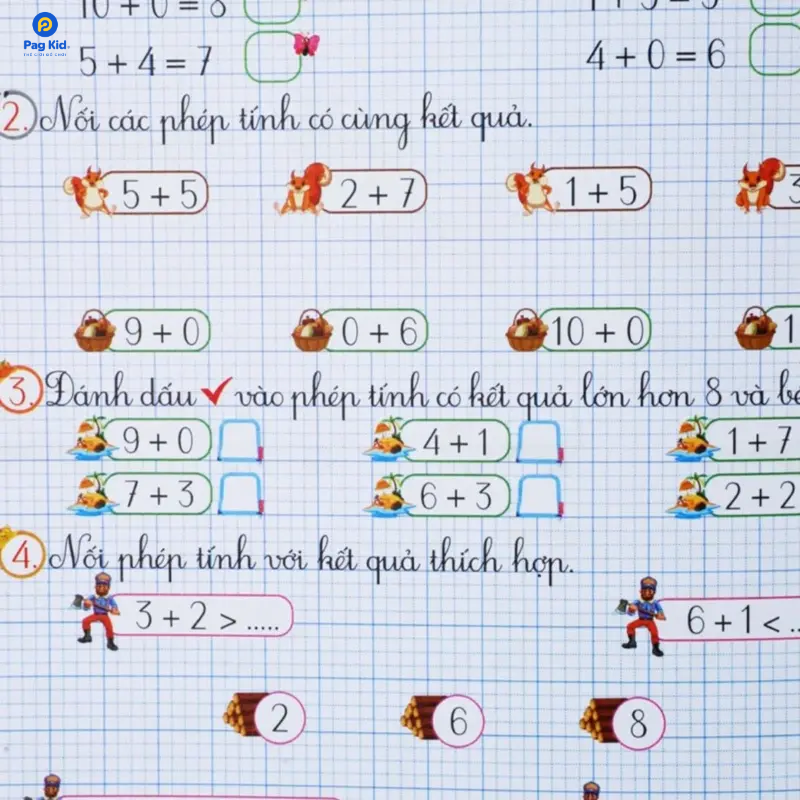 Pag Kid
10 + 0 = 8
5 + 4 = 7 4 + 0 = 6
2. Nối các phép tính có cùng kết quả.
5 + 5 2 + 7 1 + 5 3
9 + 0 0 + 6 10 + 0 1
3. Đánh dấu ✓ vào phép tính có kết quả lớn hơn 8 và bé
9 + 0 4 + 1 1 + 7
7 + 3 6 + 3 2 + 2
4. Nối phép tính với kết quả thích hợp.
3 + 2 > ..... 6 + 1 < ..
2 6 8